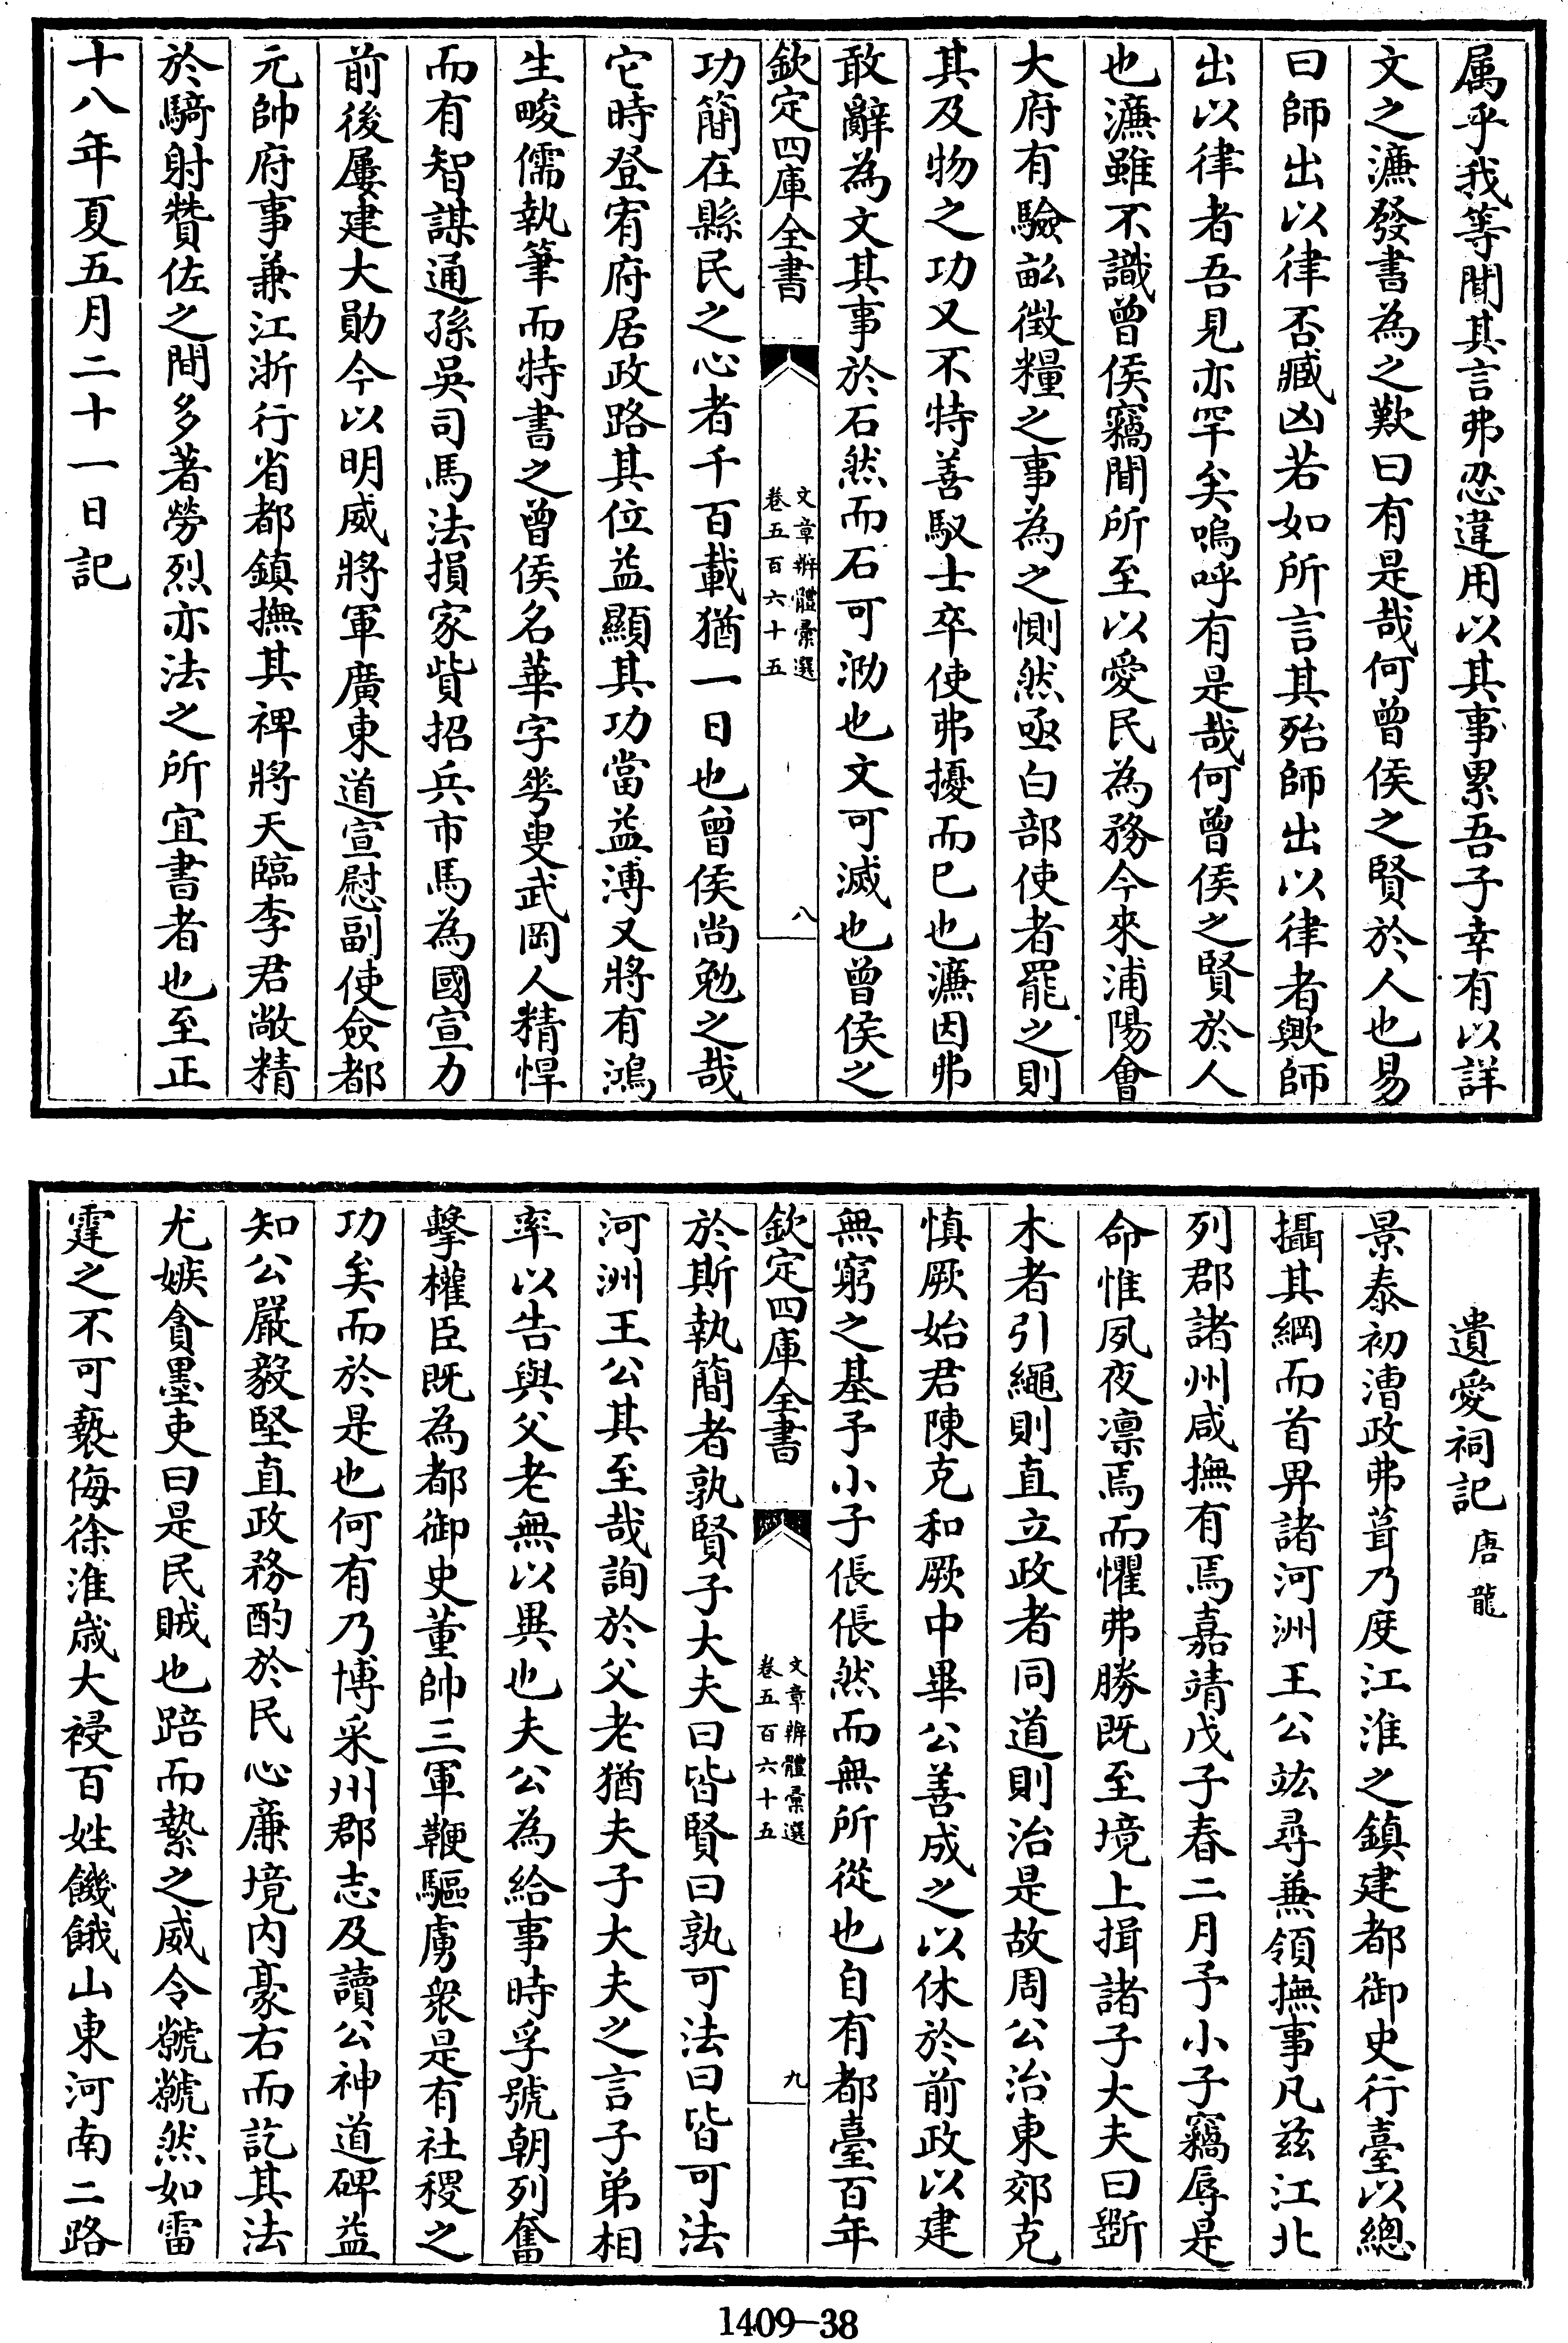 属乎我等聞其言弗忍違用以其事累吾子幸有以詳
文之濂發書為之歎曰有是哉何曾侯之賢於人也易
曰師出以律否臧凶若如所言其殆師出以律者歟師
出以律者吾見亦罕矣嗚呼有是哉何曾侯之賢於人
也濂雖不識曾侯竊聞所至以愛民為務今來浦陽會
大府有驗畝徴糧之事為之惻然亟白部使者罷之則
其及物之功又不特善馭士卒使弗擾而已也濂因弗
敢辭為文其事於石然而石可泐也文可滅也曾侯之
欽定四庫全書
文章辨體彙選
卷五百六十五
八
功簡在縣民之心者千百載猶一日也曾侯尚勉之哉
它時登宥府居政路其位益顯其功當益溥又將有鴻
生畯儒執筆而特書之曾侯名華字華叟武岡人精悍
而有智謀通孫吳司馬法損家貲招兵市馬為國宣力
前後屢建大勛今以明威將軍廣東道宣慰副使僉都
元帥府事兼江浙行省都鎮撫其禆將天臨李君敞精
於騎射贊佐之間多著勞烈亦法之所宜書者也至正
十八年夏五月二十一日記
遺愛祠記 唐龍
景泰初漕政弗葺乃度江淮之鎮建都御史行臺以總
攝其綱而首畀諸河洲王公竑尋兼領撫事凡兹江北
列郡諸州咸撫有焉嘉靖戊子春二月予小子竊辱是
命惟夙夜凛焉而懼弗勝既至境上揖諸子大夫曰斵
木者引繩則直立政者同道則治是故周公治東郊克
慎厥始君陳克和厥中畢公善成之以休於前政以建
無窮之基予小子倀倀然而無所從也自有都臺百年
欽定四庫全書
文章辨體彙選
卷五百六十五
九
於斯執簡者孰賢子大夫曰皆賢曰孰可法曰皆可法
河洲王公其至哉詢於父老猶夫子大夫之言子弟相
率以告與父老無以異也夫公為給事時孚號朝列奮
擊權臣既為都御史董帥三軍鞭驅虜衆是有社稷之
功矣而於是也何有乃博采州郡志及讀公神道碑益
知公嚴毅堅直政務酌於民心亷境内豪右而訖其法
尤嫉貪墨吏曰是民賊也踣而縶之威令虩虩然如雷
霆之不可褻侮徐淮歳大祲百姓饑餓山東河南二路
1409-38